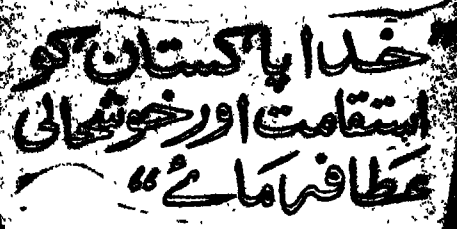 خدا پاکستان کو
استقامت اور خوشحالی
عطا فرمائے “